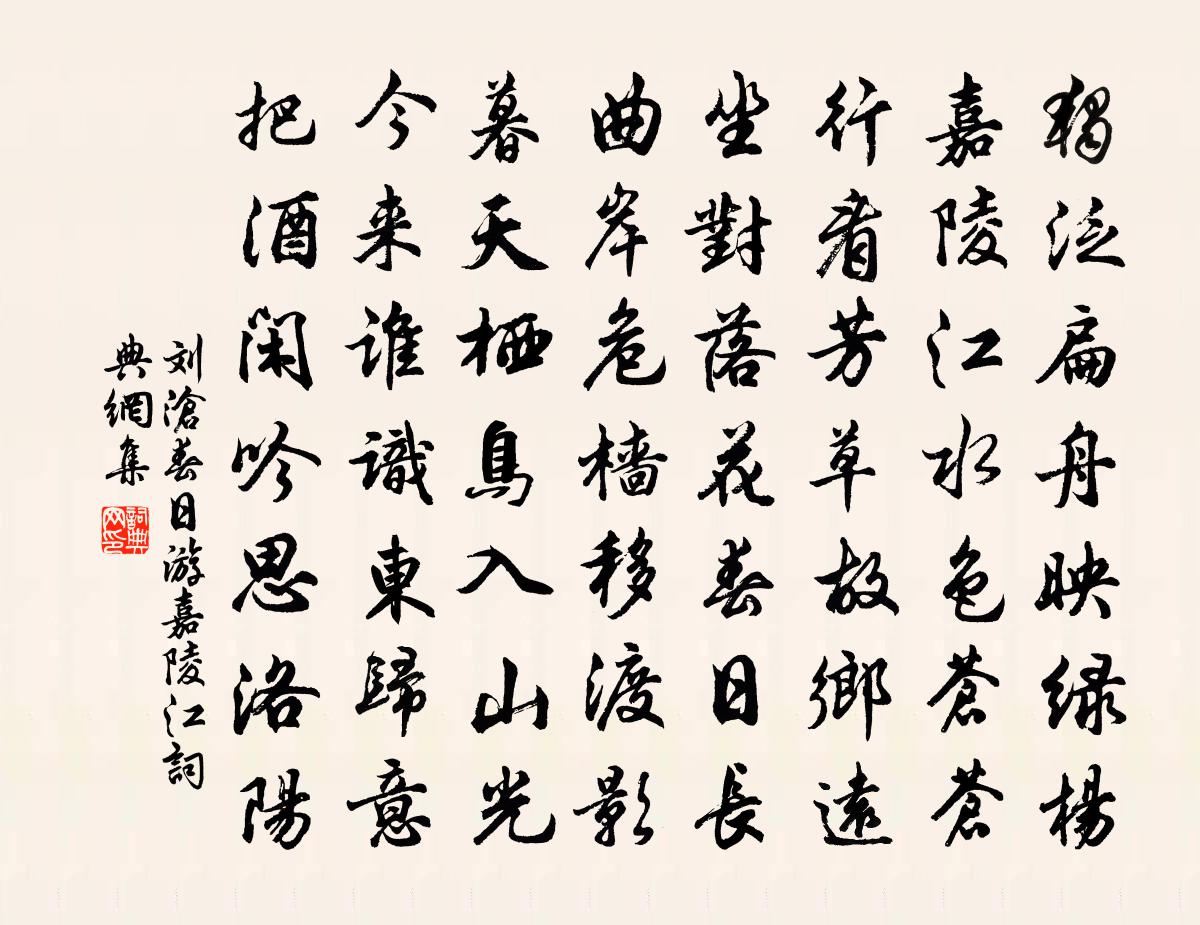 獨泛扁舟映绿楊
嘉陵江水色蒼蒼
行看芳草故鄉遠
坐對落花春日長
曲岸危檣移渡影
暮天栖鳥入山光
今来誰識東歸意
把酒闲吟思洛陽
刘滄春日游嘉陵江詞
典網集
詞典网印